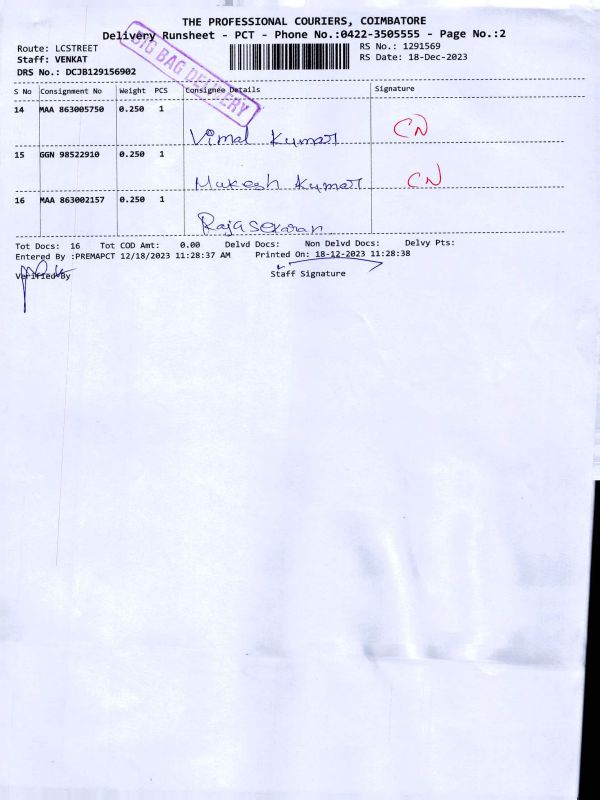 THE PROFESSIONAL COURIERS, COIMBATORE
Delivery Runsheet - PCT - Phone No.:0422-3505555 - Page No.:2
Route: LCSTREET
RS No.: 1291569
Staff: VENKAT
RS Date: 18-Dec-2023
DRS No.: DCJB129156902
BIG BAG DELIVERY
S No Consignment No Weight PCS Consignee Details Signature
14 MAA 863005750 0.250 1
Vimal Kumar CN
15 GGN 98522910 0.250 1
Mukesh Kumar CN
16 MAA 863002157 0.250 1
Rajasekaran
Tot Docs: 16 Tot COD Amt: 0.00 Delvd Docs: Non Delvd Docs: Delvy Pts:
Entered By :PREMAPCT 12/18/2023 11:28:37 AM Printed On: 18-12-2023 11:28:38
Verified By Staff Signature